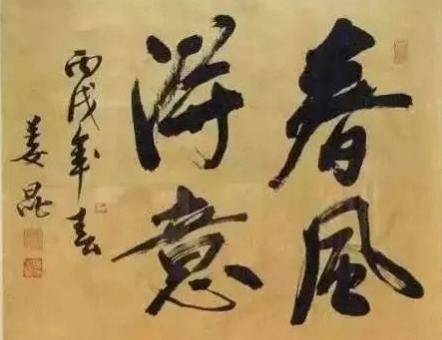 春风
得意
丙戌年春
姜昆